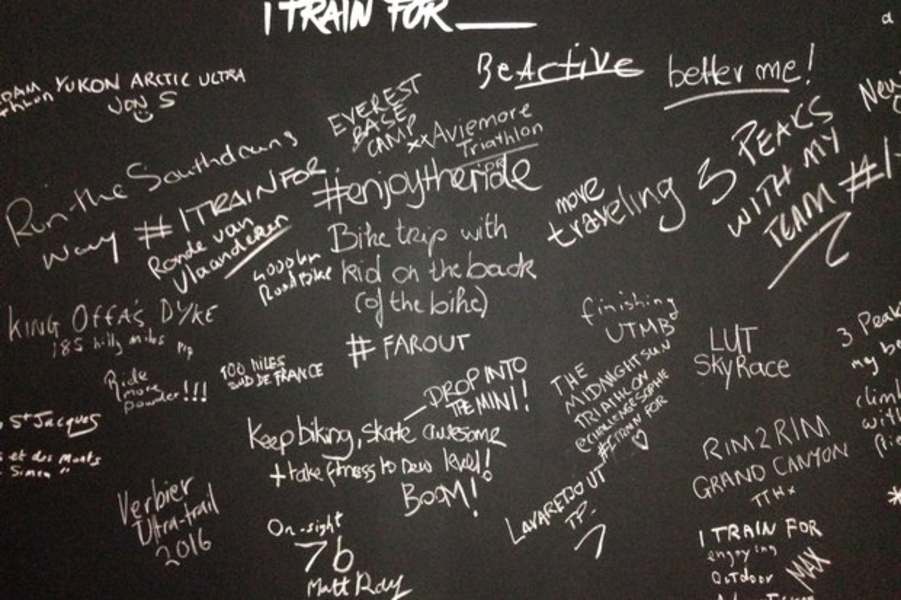 I TRAIN FOR ____
BeActive
better me!
YUKON ARCTIC ULTRA
JON S
EVEREST
BASE
CAMP
xx Aviemore
Triathlon
3 PEAKS
WITH MY
TEAM #1
New
Run the Southdowns
way #ITRAINFOR
Ronde van
Vlaanderen
#enjoytheride
move
traveling
Bike trip with
kid on the back
(of the bike)
4000km
Road Bike
KING OFFA'S DYKE
185 hilly miles
# FAROUT
finishing
UTMB
LUT
SkyRace
3 Peaks
my be
climb
with
Ride
more
powder!!!
100 MILES
SUD DE FRANCE
DROP INTO
THE MINI!
THE
MIDNIGHTSUN
TRIATHLON
@CHALLENGESOPHIE
#ITRAINFOR
♡
St Jacques
et des Monts
Keep biking, skate awesome
+ take fitness to new level!
BOOM!
RIM2RIM
GRAND CANYON
Verbier
Ultra-trail
2016
On-sight
7b
Matt Ray
LAVAREDO UT
I TRAIN FOR
enjoying
OUTDOOR
MAX